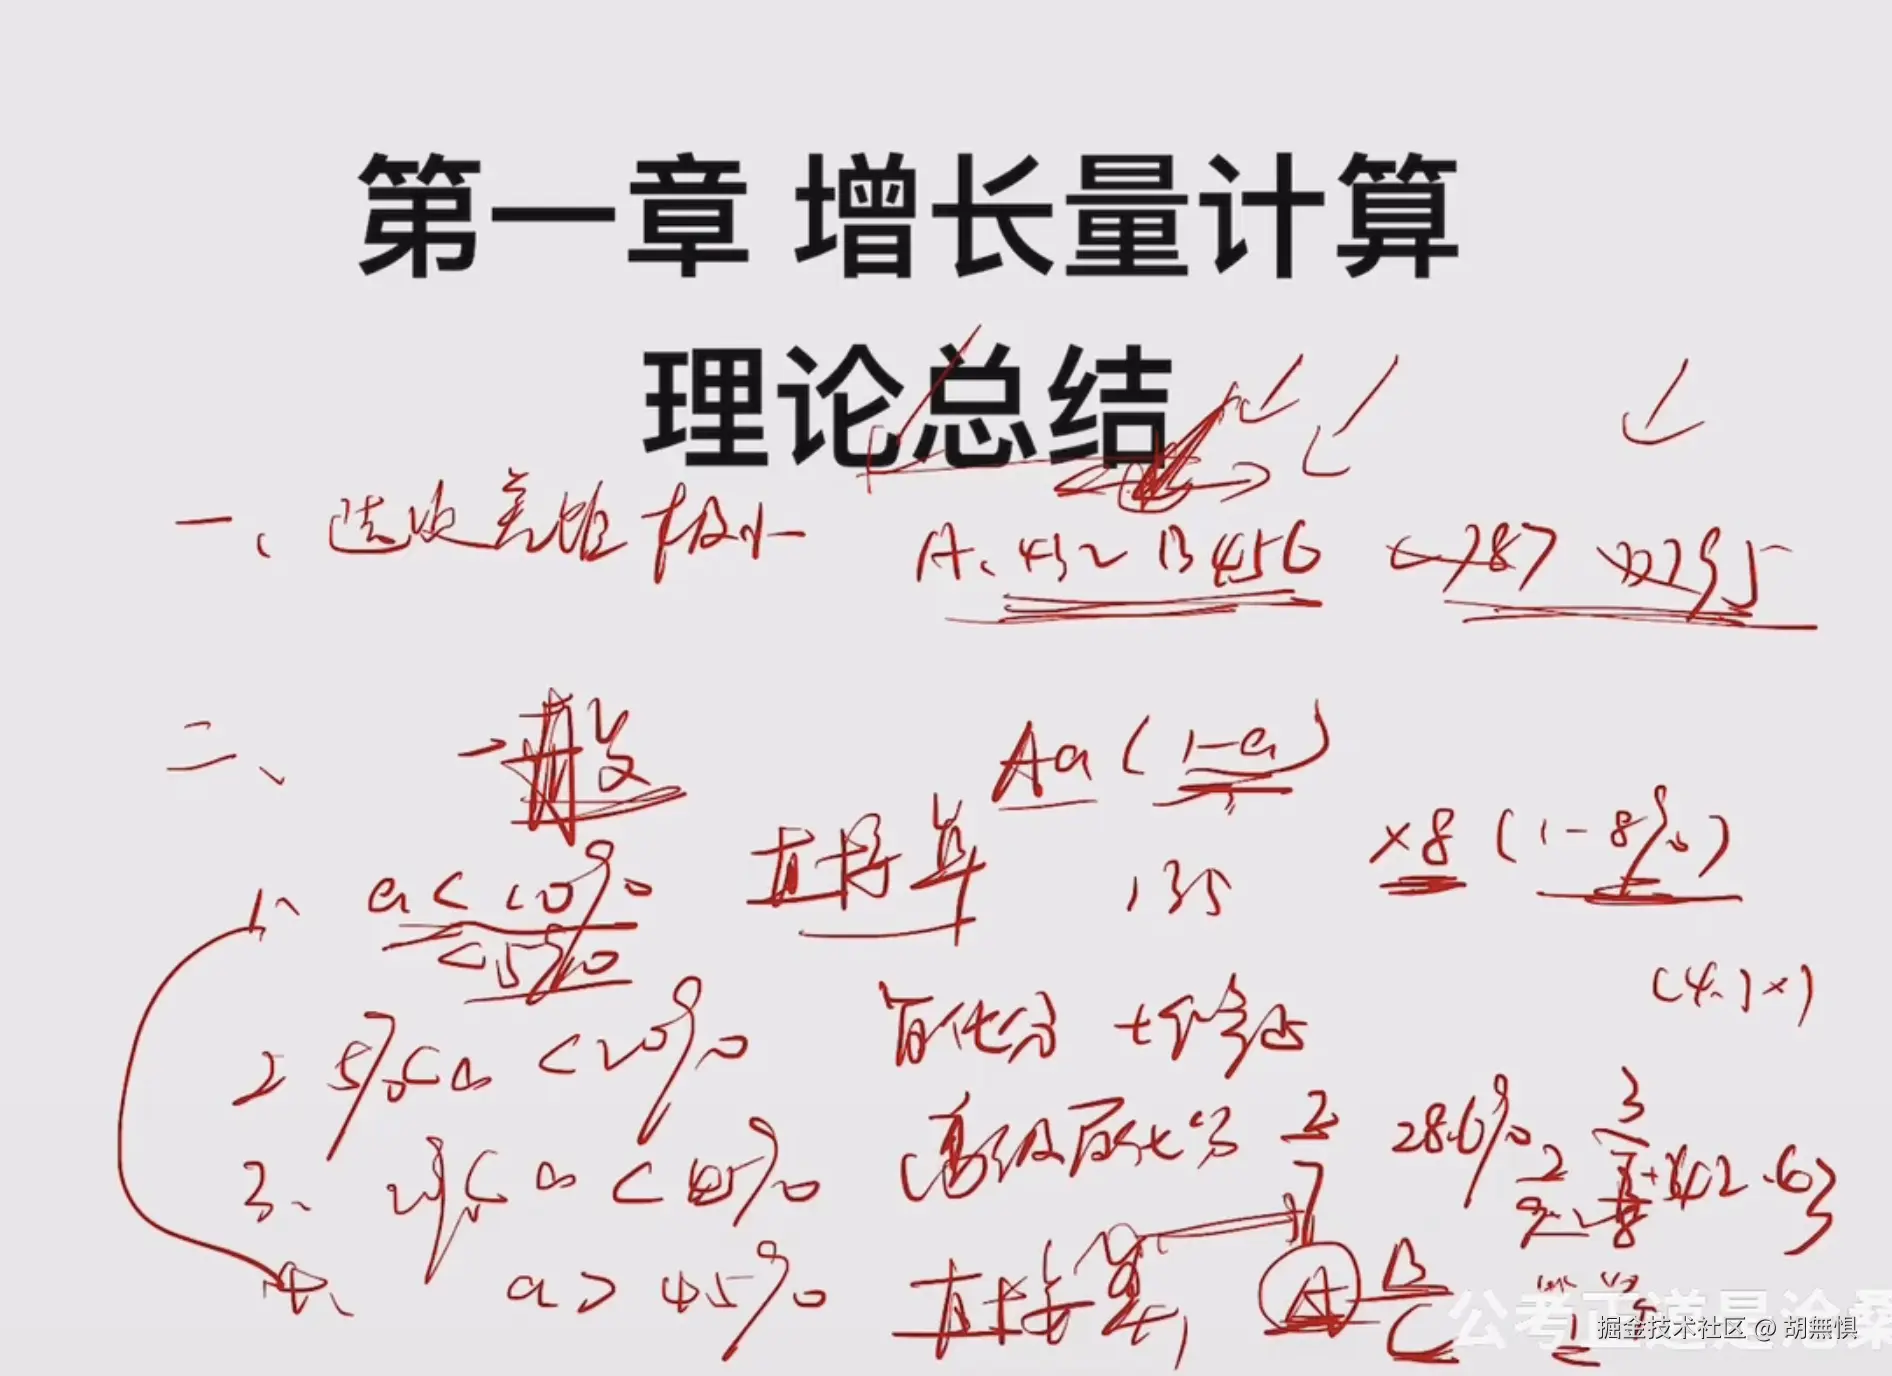 第一章 增长量计算
理论总结
一、选项差距极小 A、432 B 456 C 787 D 795
二、一般 Aa(1-a)
1、a<10% 直接算 135 ×8(1-8%)
<5%
2 5%<a<20% 百化分+修正
3、<a<45% 高级百化分 2/7 28.6%
4、a>45% 直接算 A B/C
公考正道是沧桑
掘金技术社区 @ 胡無惧